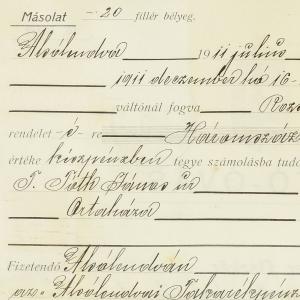 Másolat -20 fillér bélyeg.
Alsólendva 1911 július
1911 deczember hó 16-
váltónál fogva Roz
rendelet -é- re Háromszáz
értéke készpénzben tegye számolásba tudó
T. Tóth János úr
Ortaháza
Fizetendő Alsólendván
az Alsólendvai Takarékpénz